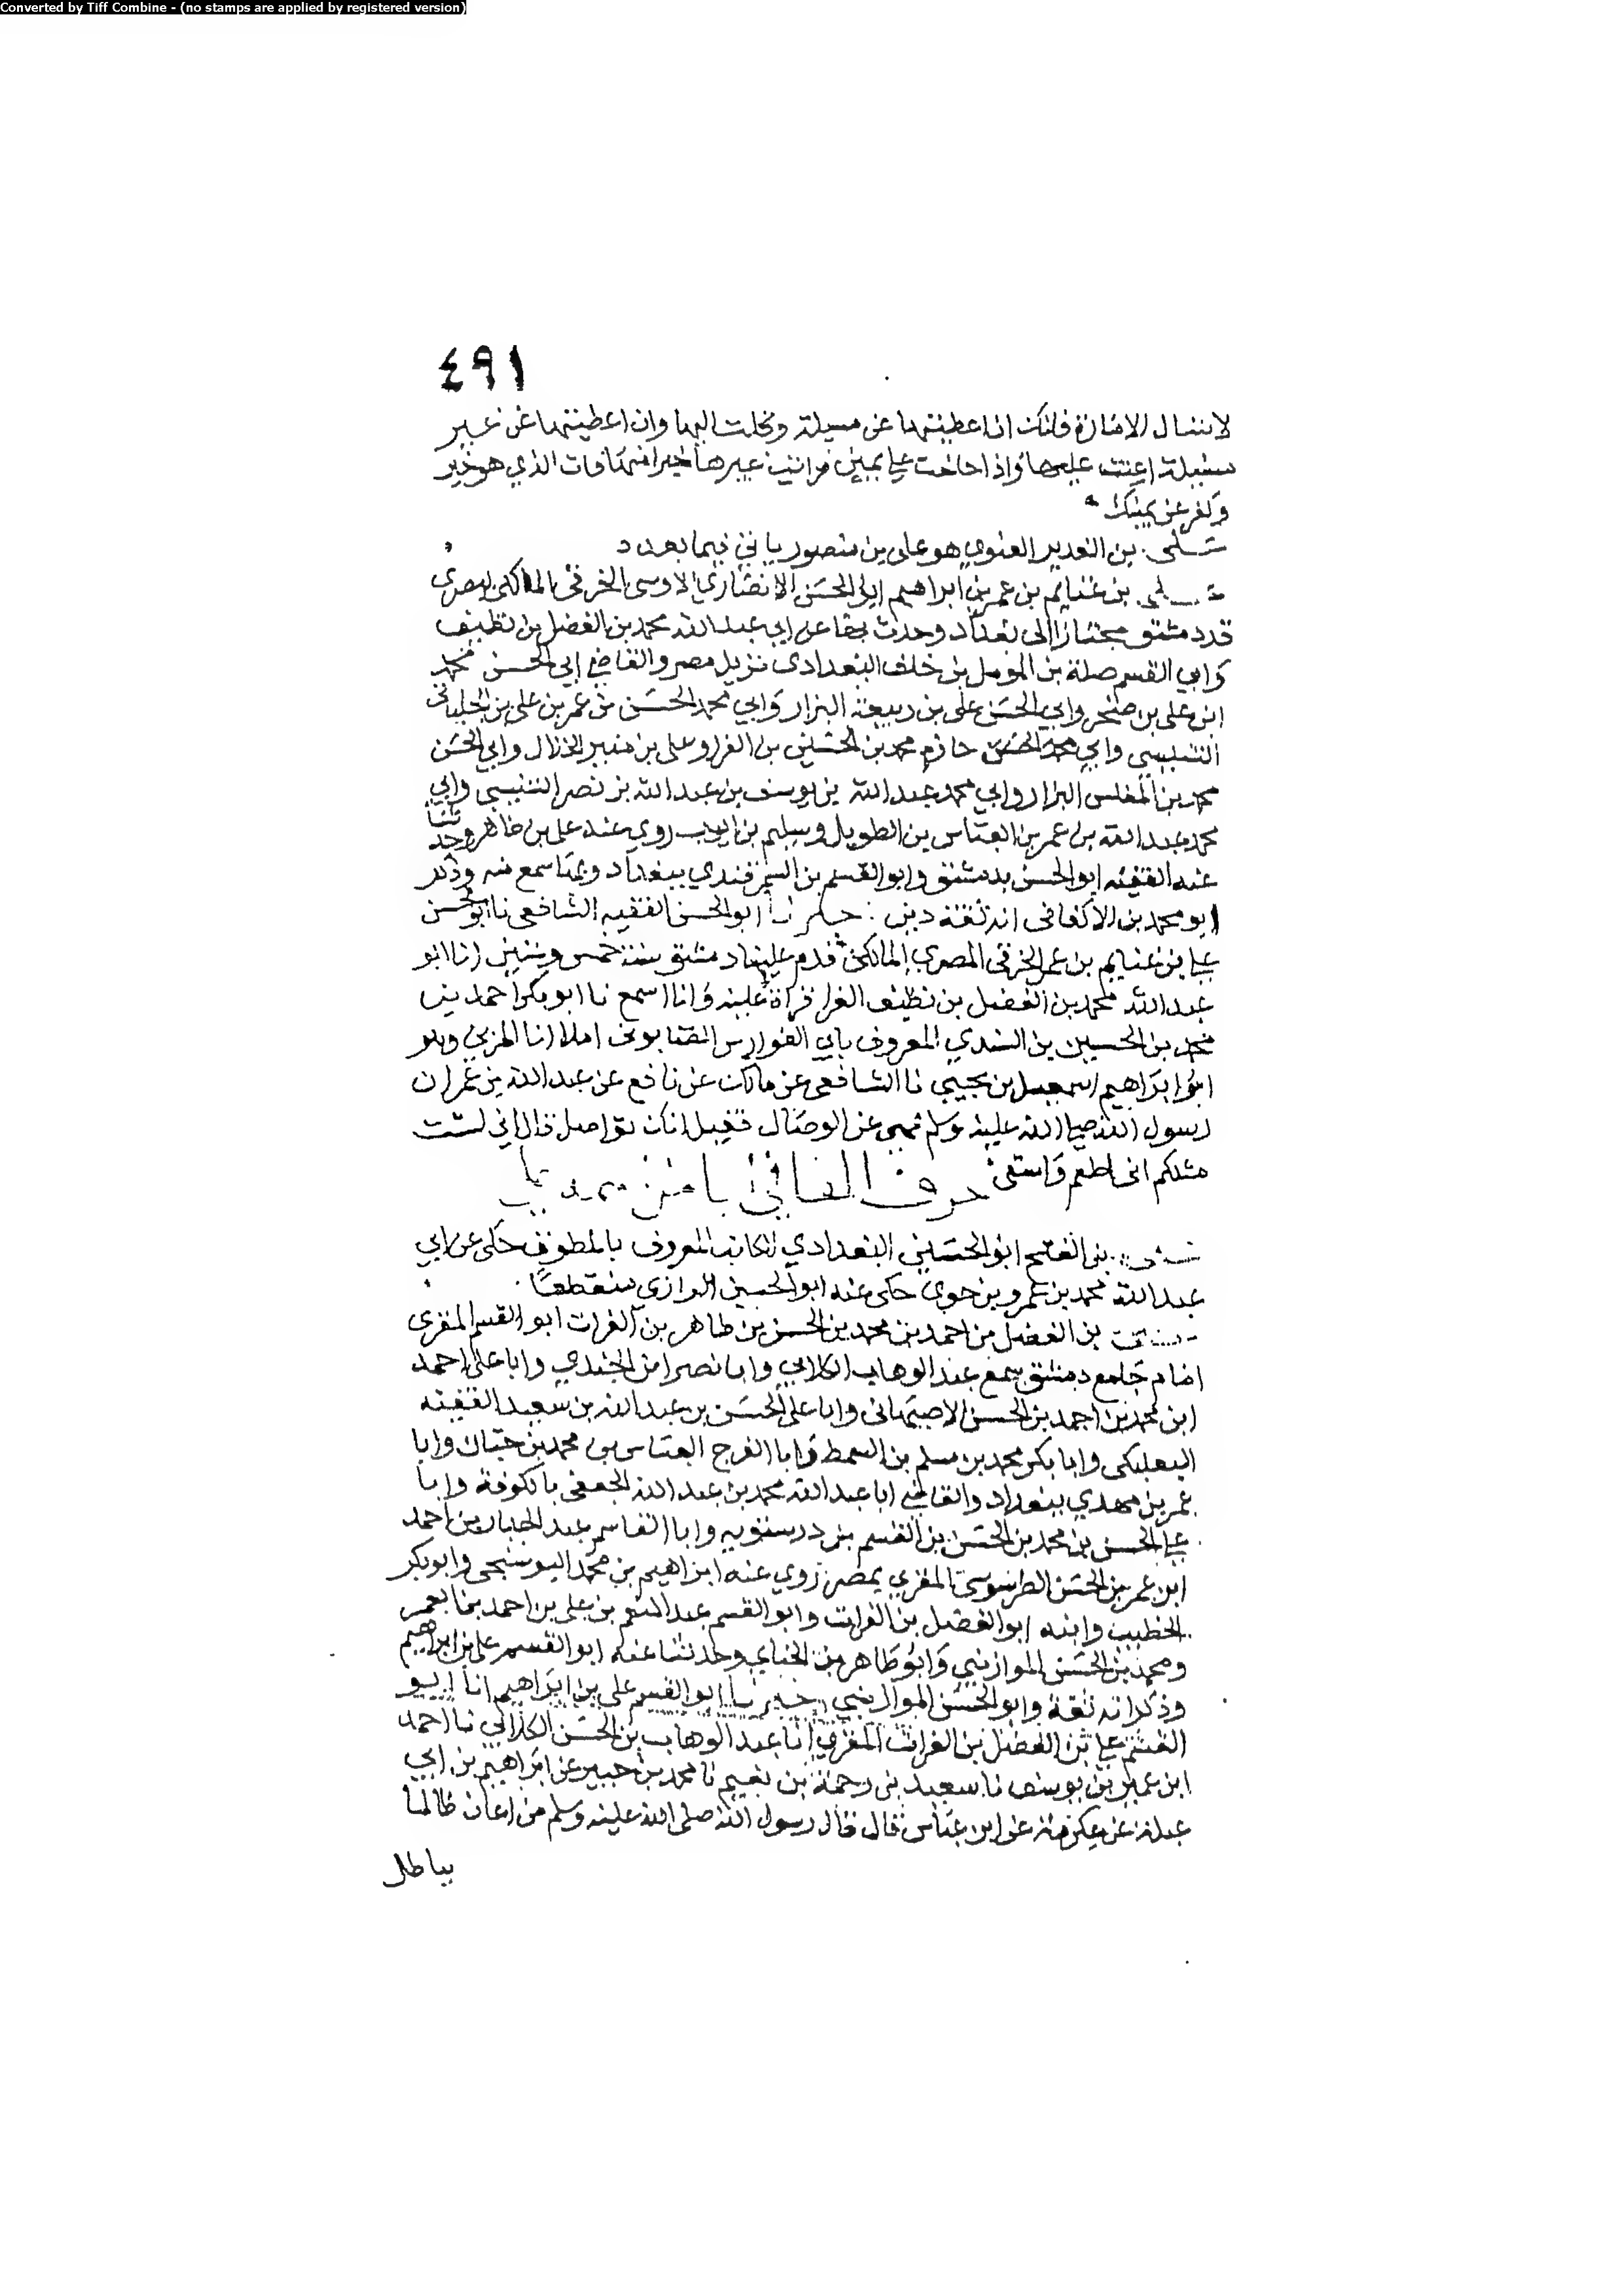 Converted by Tiff Combine - (no stamps are applied by registered version)
٤٩١
لا تسال الامارة فانك ان اعطيتها عن مسيلة وكلت اليها وان اعطيتها عن غير
مسيلة اعنت عليها واذا حلفت على يمين فرايت غيرها خيرا منها فات الذي هو خير
وكفر عن يمينك
علي بن الغدير الغنوي هو علي بن منصور ياتي فيما بعد
علي بن غنايم بن عمر بن ابراهيم ابو الحسن الانصاري الاوسي الخرقي المالكي المصري
قدم دمشق مجتازا الى بغداد وحدث بها عن ابي عبد الله محمد بن الفضل بن نظيف
وابي القسم صلة بن المومل بن خلف البغدادي نزيل مصر والقاضي ابي الحسن محمد
ابن علي بن صخر وابي الحسن علي بن ربيعة البزار وابي محمد الحسن بن عمر بن علي بن
التنيسي وابي محمد الحسن حازم محمد بن الحسين بن الفرا وعلي بن منير الخلال وابي الحسن
محمد بن المغلس البزار وابي محمد عبد الله بن يوسف بن عبد الله بن نصر التنيسي وابي
محمد عبد الله بن عمر بن العباس بن الطويل وسليم بن ايوب روى عنه علي بن طاهر وحدثنا
عنه الفقيه ابو الحسن بدمشق وابو القسم بن السمرقندي ببغداد وبها سمع منه وذكر
ابو محمد بن الاكفاني انه ثقة دين ابو الحسن الفقيه الشافعي نا ابو الحسن
علي بن غنايم بن عمر الخرقي المصري المالكي قدم علينا دمشق سنة خمس وستين انا ابو
عبد الله محمد بن الفضل بن نظيف الفرا قراة عليه وانا اسمع نا ابو بكر احمد بن
محمد بن الحسين بن السندي المعروف بابي الفوارس الصابوني املا انا المزني وهو
ابو ابراهيم اسمعيل بن يحيى نا الشافعي عن مالك عن نافع عن عبد الله بن عمر ان
رسول الله صلى الله عليه وسلم نهى عن الوصال فقيل انك تواصل قال اني لست
مثلكم اني اطعم واسقى حرف الفا في
بن الفتح ابو الحسين البغدادي الكاتب المعروف بالمطوق حكى عن ابي
عبد الله محمد بن عمرو بن حوى حكى عنه ابو الحسين الرازي منقطعا
بن الفضل بن احمد بن محمد بن الحسن بن طاهر بن الفرات ابو القسم المقري
امام جامع دمشق سمع عبد الوهاب الكلابي وابا نصر ابن الجندي وابا علي احمد
ابن محمد بن احمد بن الحسن الاصبهاني وابا علي الحسن بن عبد الله بن سعيد الفقيه
البعلبكي وابا بكر محمد بن مسلم بن السمط وابا الفرج العباس بن محمد بن حبان وابا
عمر بن مهدي ببغداد والقاضي ابا عبد الله محمد بن عبد الله الجعفي بالكوفة وابا
علي الحسن بن محمد بن الحسن بن القسم بن درستويه وابا القاسم عبد الجبار بن احمد
ابن عمر بن الحسن الطرسوسي المقري بمصر روى عنه ابراهيم بن محمد البوسنجي وابو بكر
الخطيب وابنه ابو الفضل بن الفرات وابو القسم عبد المنعم بن علي بن احمد بن
ومحمد بن الحسن الموازيني وابو طاهر بن الحناي وحدثنا عنه ابو القسم علي بن ابراهيم
وذكر انه ثقة وابو الحسن الموازيني اخبرنا ابو القسم علي بن ابراهيم انا ابو
القسم علي بن الفضل بن الفرات المقري انا عبد الوهاب بن الحسن الكلابي نا احمد
ابن عمير بن يوسف نا سعيد بن رحمة بن نعيم نا محمد بن حمير عن ابراهيم بن ابي
عبلة عن عكرمة عن ابن عباس قال قال رسول الله صلى الله عليه وسلم من اعان ظالما
بباطل